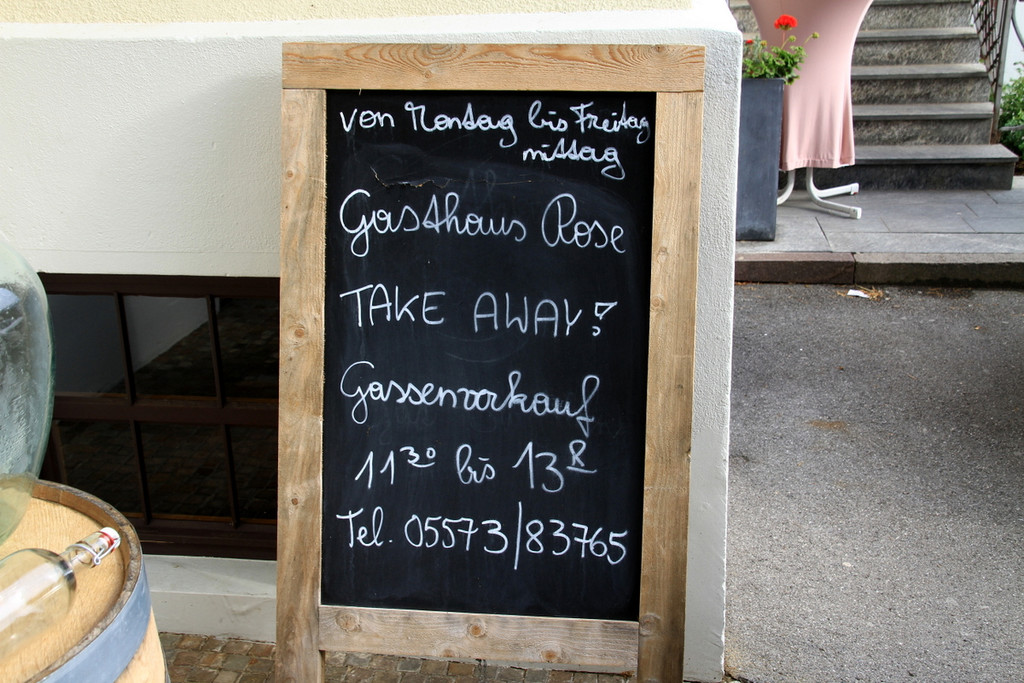 von Montag bis Freitag
mittag
Gasthaus Rose
TAKE AWAY!
Gassenverkauf
11³⁰ bis 13
Tel. 05573/83765